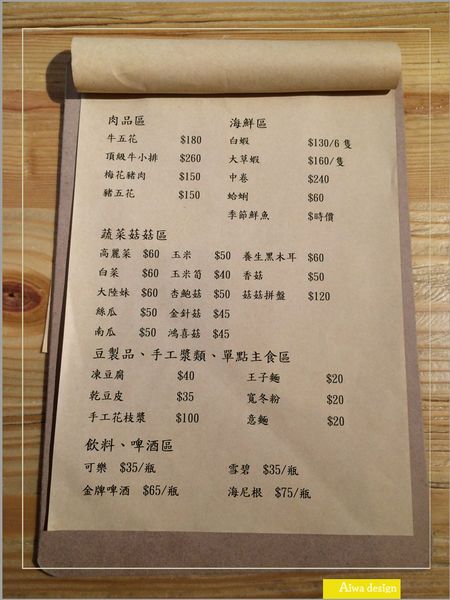 肉品區 海鮮區
牛五花 $180 白蝦 $130/6 隻
頂級牛小排 $260 大草蝦 $160/隻
梅花豬肉 $150 中卷 $240
豬五花 $150 蛤蜊 $60
季節鮮魚 $時價
蔬菜菇菇區
高麗菜 $60 玉米 $50 養生黑木耳 $60
白菜 $60 玉米筍 $40 香菇 $50
大陸妹 $60 杏鮑菇 $50 菇菇拼盤 $120
絲瓜 $50 金針菇 $45
南瓜 $50 鴻喜菇 $45
豆製品、手工漿類、單點主食區
凍豆腐 $40 王子麵 $20
乾豆皮 $35 寬冬粉 $20
手工花枝漿 $100 意麵 $20
飲料、啤酒區
可樂 $35/瓶 雪碧 $35/瓶
金牌啤酒 $65/瓶 海尼根 $75/瓶
Aiwa design